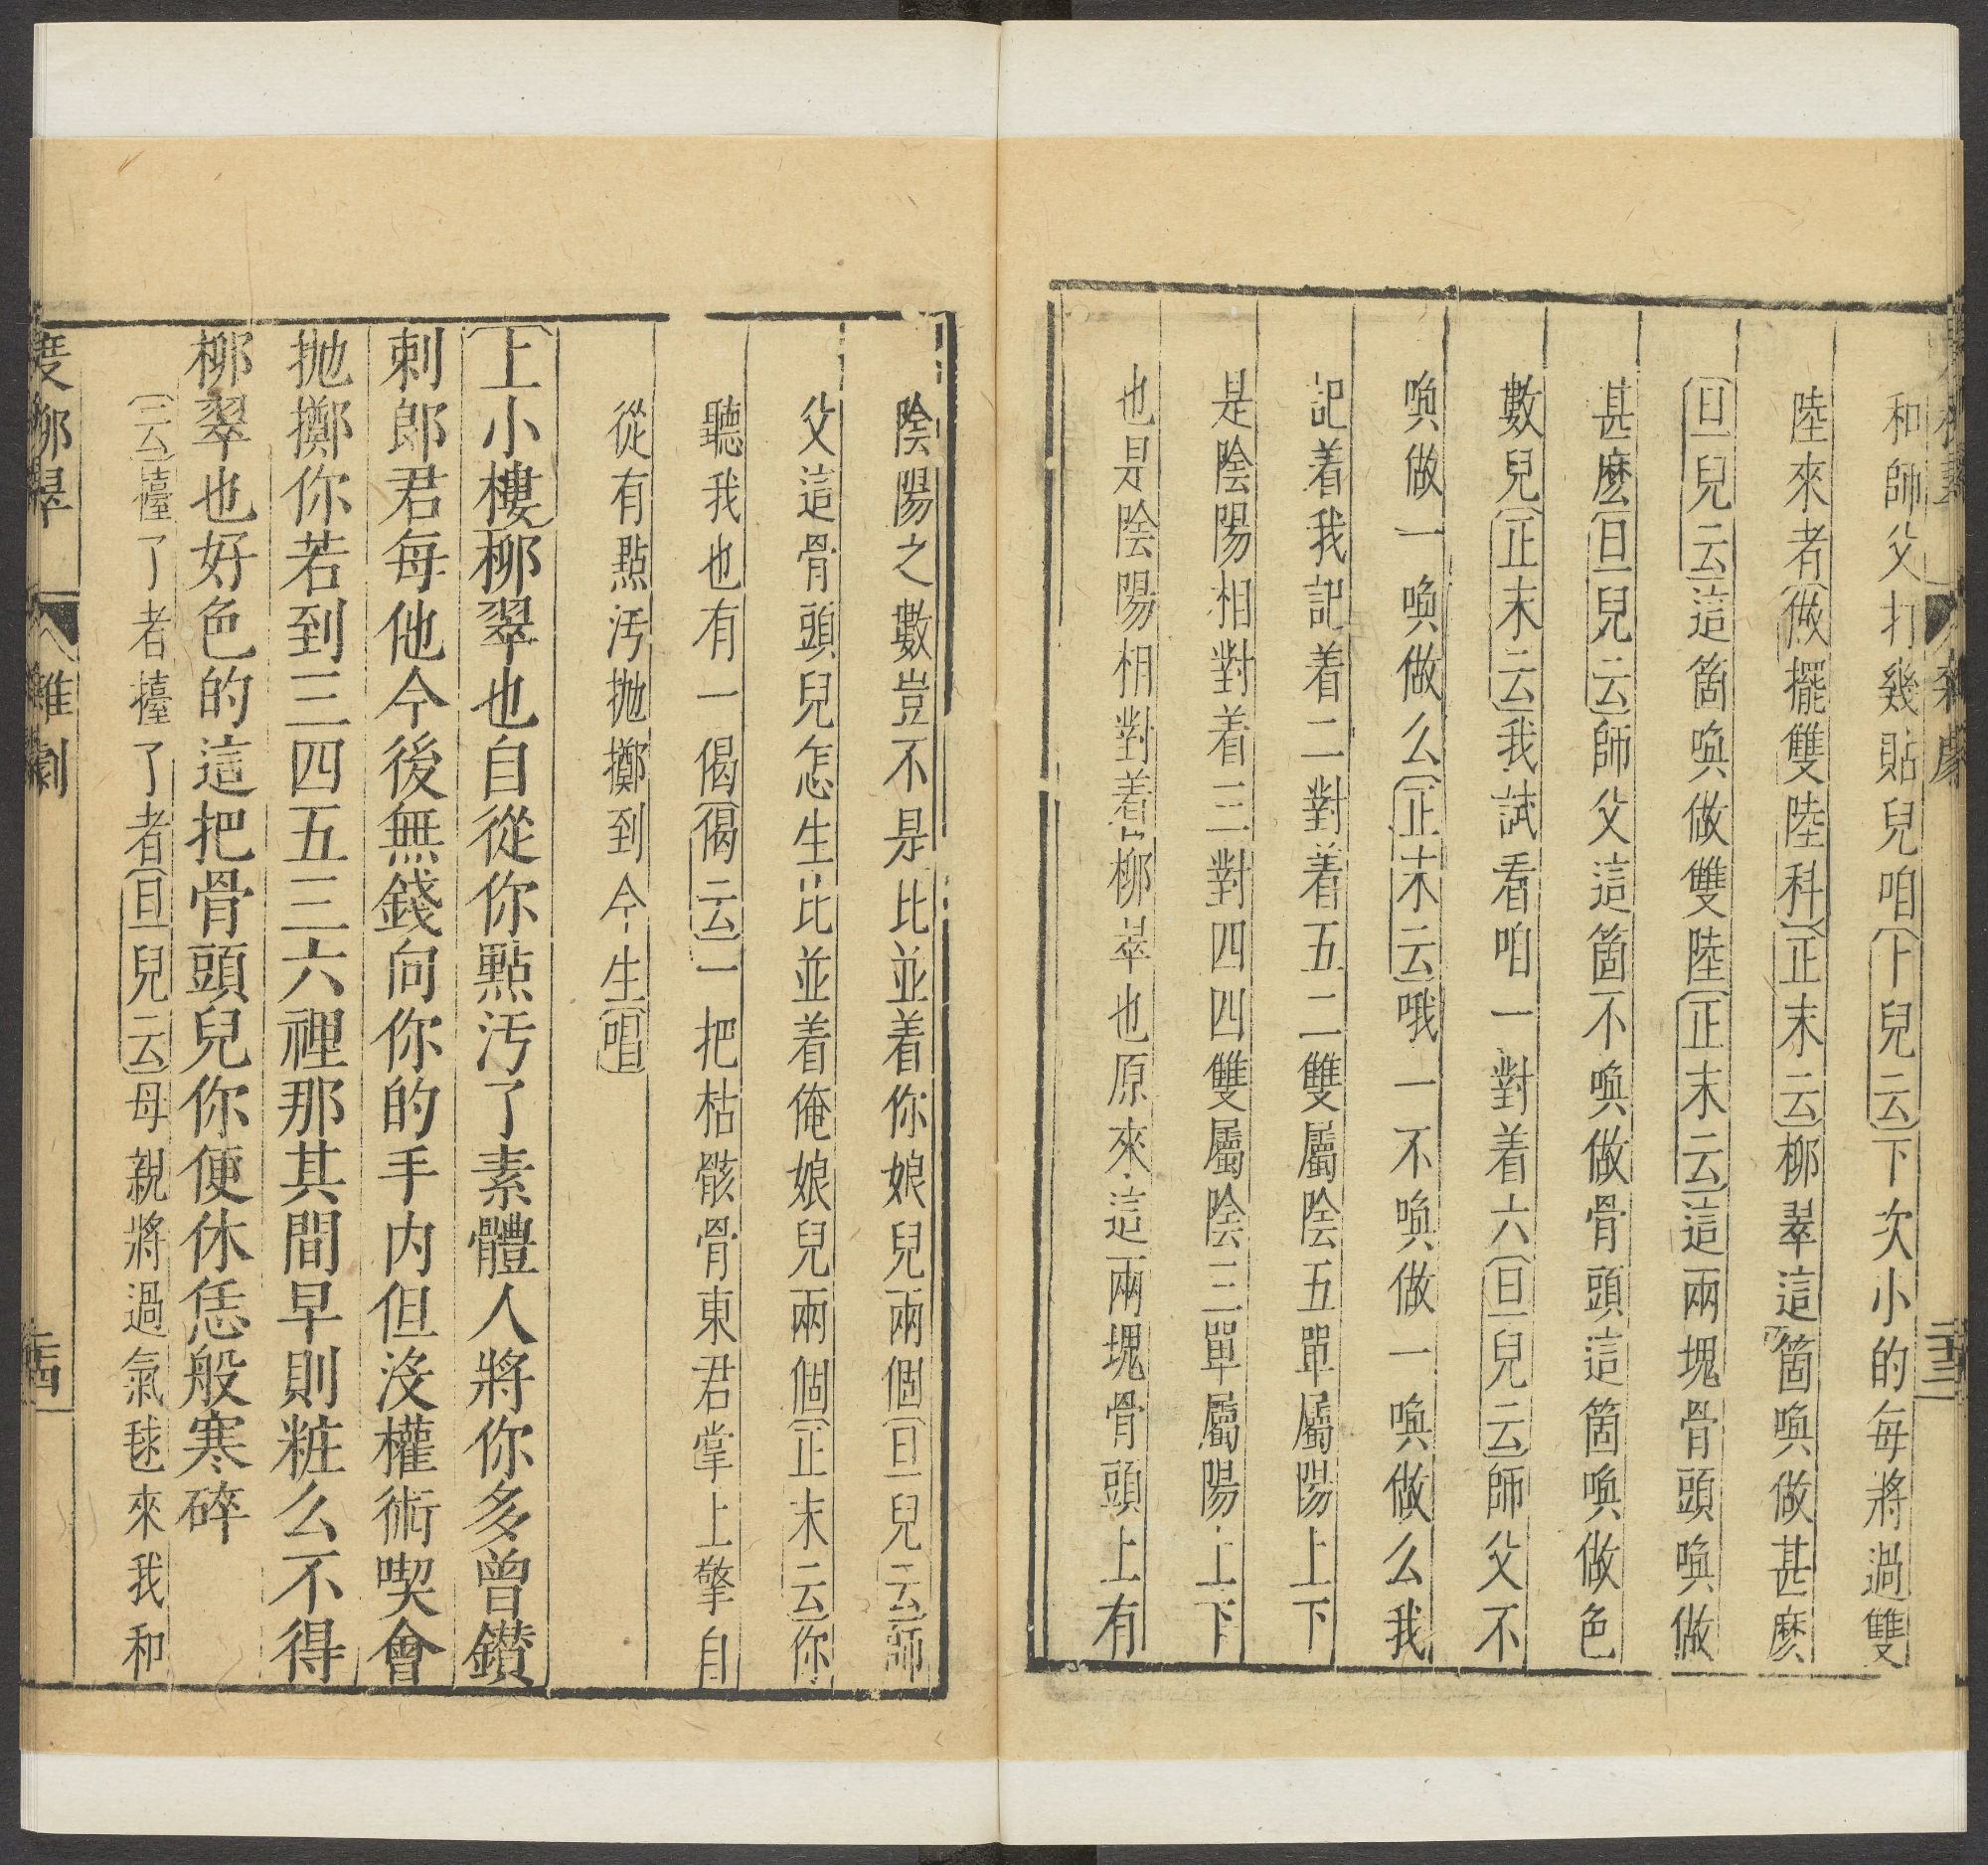 雜劇
二十三
和師父打幾貼兒咱〔卜兒云〕下次小的每將過雙
陸來者〔做擺雙陸科〕〔正末云〕柳翠這箇喚做甚麽
〔旦兒云〕這箇喚做雙陸〔正末云〕這兩塊骨頭喚做
甚麽〔旦兒云〕師父這箇不喚做骨頭這箇喚做色
數兒〔正末云〕我試看咱一對着六〔旦兒云〕師父不
喚做一喚做么〔正末云〕哦一不喚做一喚做么我
記着我記着二對着五二雙屬陰五單屬陽上下
是陰陽相對着三對四四雙屬陰三單屬陽上下
也是陰陽相對着柳翠也原來這兩塊骨頭上有
陰陽之數豈不是比並着你娘兒兩個〔旦兒云〕師
父這骨頭兒怎生比並着俺娘兒兩個〔正末云〕你
聽我也有一偈〔偈云〕一把枯骸骨東君掌上擎自
從有點汚抛擲到今生〔唱〕
〔上小樓〕柳翠也自從你點汚了素體人將你多曾鑚
刺郎君每他今後無錢向你的手内但沒權術喫會
抛擲你若到三四五三六裡那其間早則粧么不得
柳翠也好色的這把骨頭兒你便休恁般寒碎
〔云〕擡了者擡了者〔旦兒云〕母親將過氣毬來我和
度柳翠
雜劇
二十四